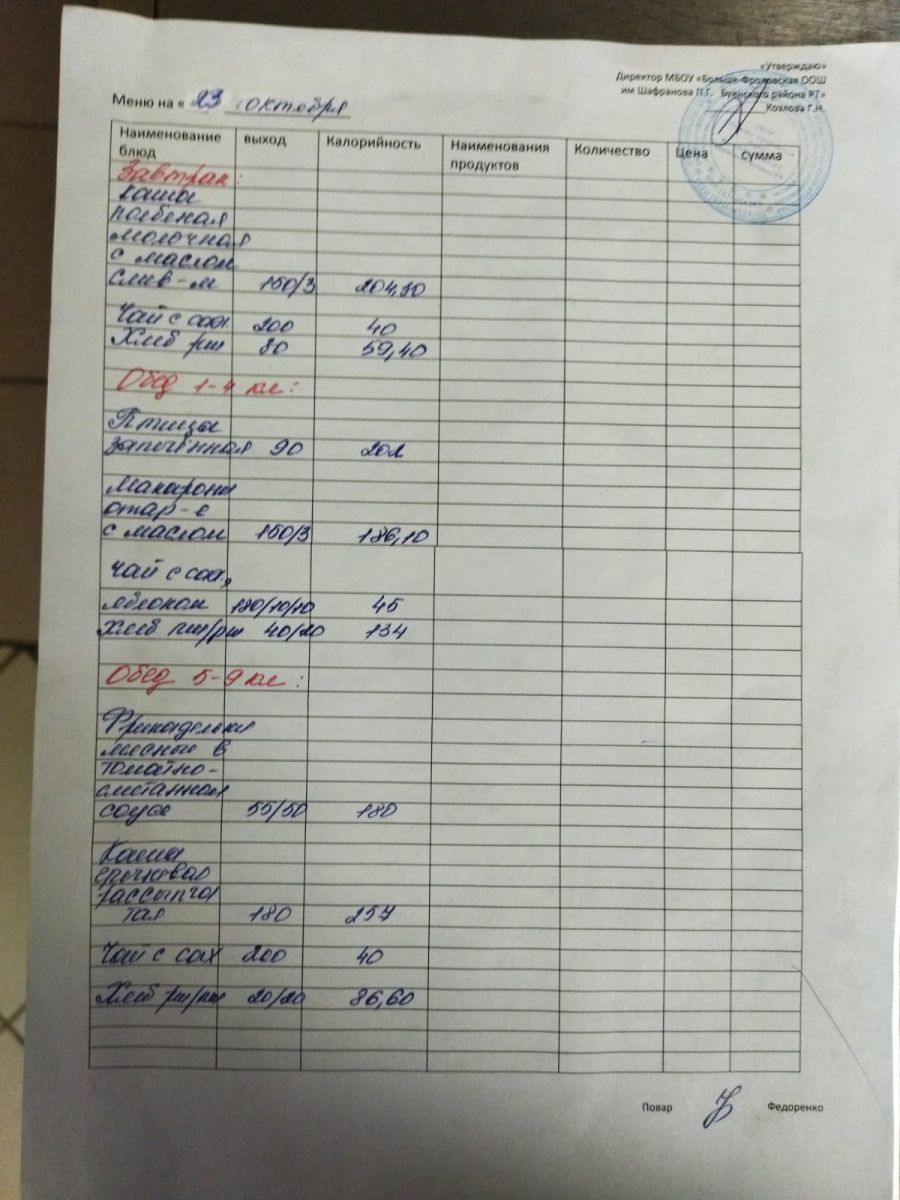 «Утверждаю»
Директор МБОУ «Больше-Фроловская ООШ
им Шафранова П.Г. Буинского района РТ»
Козлова Г.Н.
Меню на « 23 октября
Наименование блюд выход Калорийность Наименования продуктов Количество Цена сумма
Завтрак:
Каша
молочная
с маслом
слив-м 150/3 204,30
Чай с сах. 200 40
Хлеб рж 80 59,40
Обед 1-4 кл:
Птица
запечённая 90 202
Макароны
отар-е
с маслом 150/3 186,10
чай с сах,
яблоком 180/10/10 45
Хлеб пш/рж 40/20 134
Обед 5-9 кл:
Фрикадельки
мясные в
томатно-
сметанном
соусе 55/50 180
Каша
гречневая
рассыпча
тая 180 257
Чай с сах 200 40
Хлеб рж/пш 20/20 86,60
Повар Федоренко